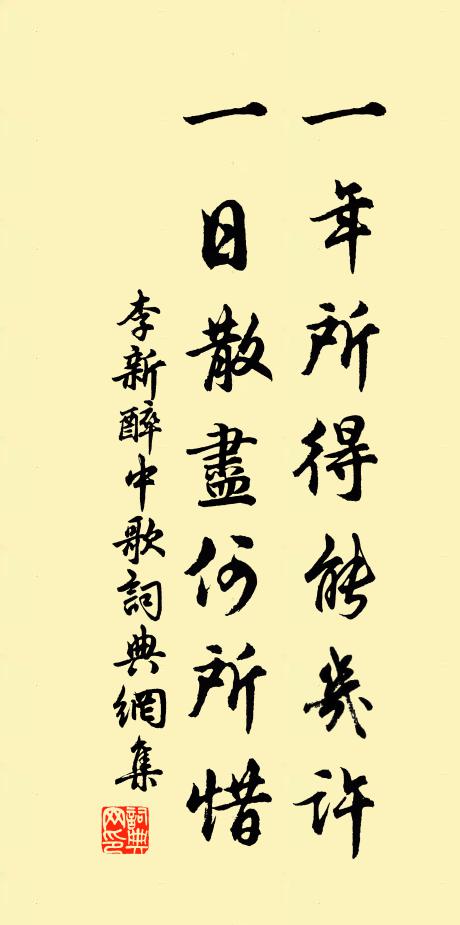 一年所得能幾許
一日散盡何所惜
李新醉中歌詞典網集
詞典網印